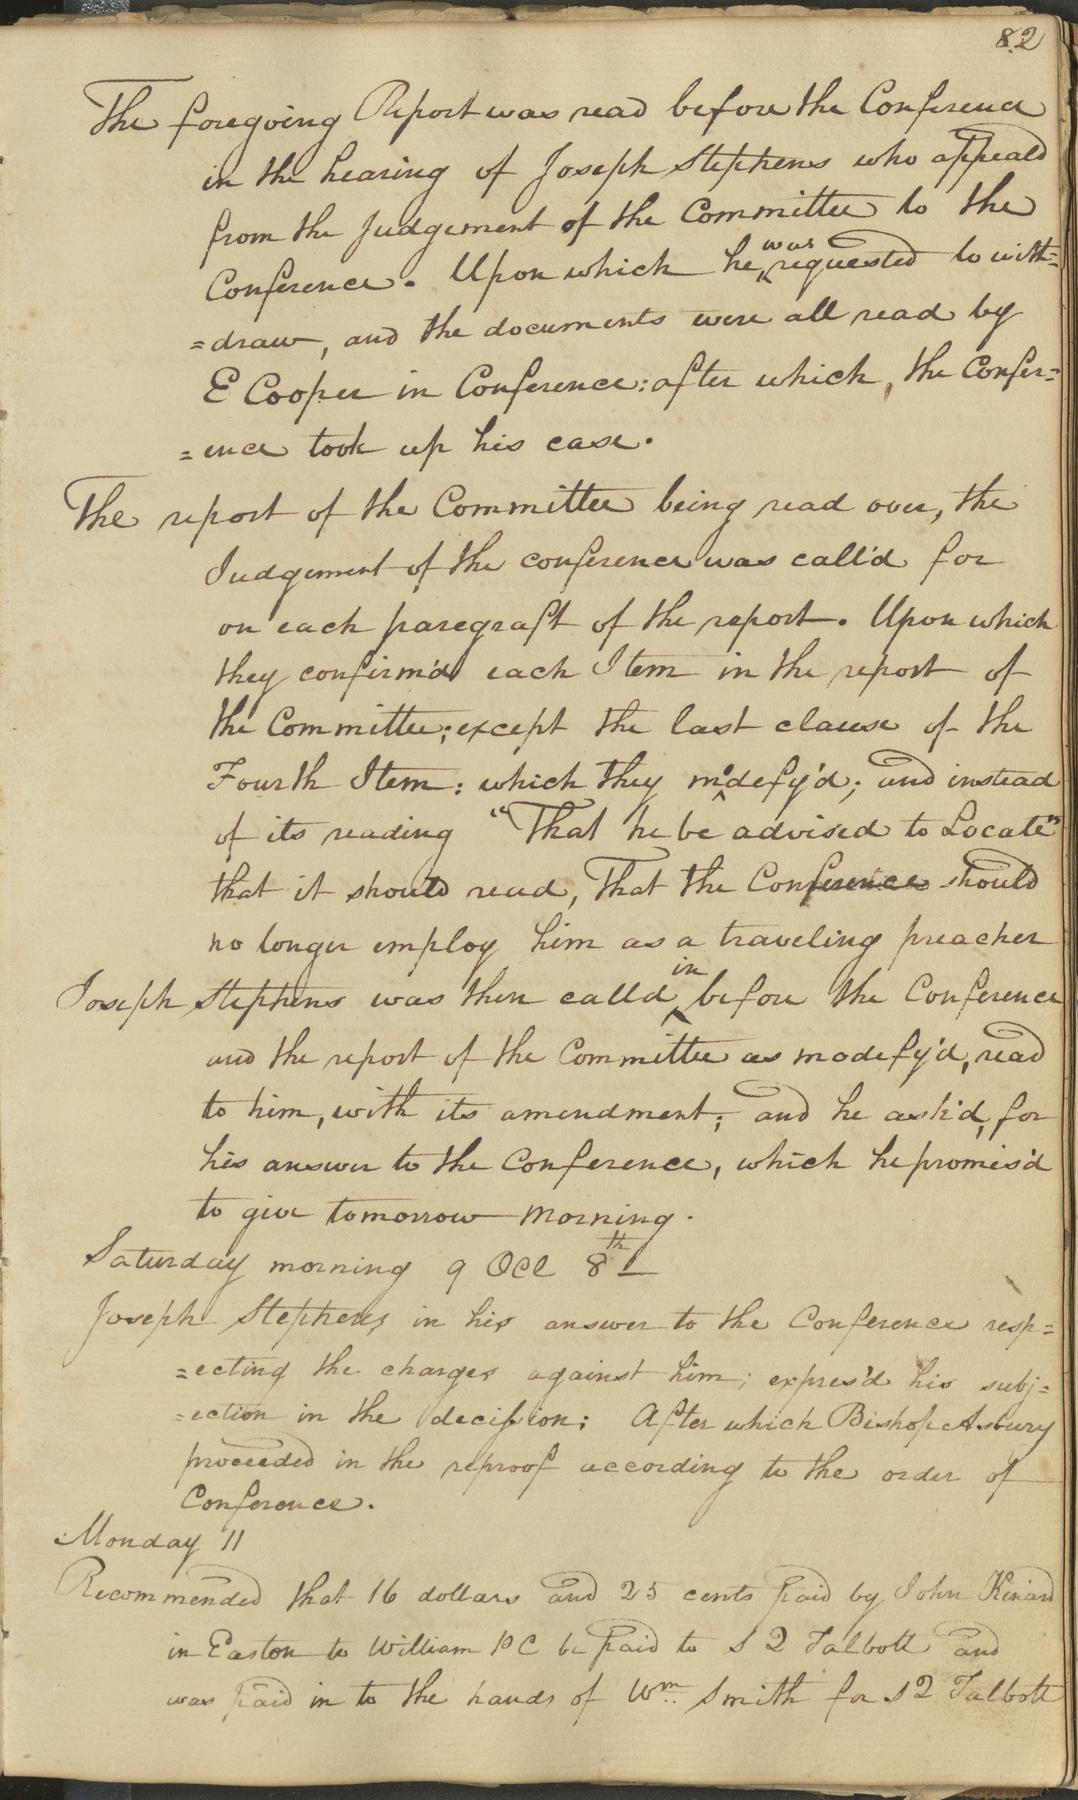 82
The foregoing Report was read before the Conference
in the hearing of Joseph Stephens who appeald
from the Judgement of the Committee to the
Conference. Upon which he was requested to with=
=draw, and the documents were all read by
E Cooper in Conference: after which, the Confer=
=ence took up his case.
The report of the Committee being read over, the
Judgement of the conference was call'd for
on each paregraft of the report. Upon which
they confirm'd each Item in the report of
the Committee; except the last clause of the
Fourth Item: which they modefy'd; and instead
of its reading "That he be advised to Locate"
that it should read, That the Conference should
no longer employ him as a traveling preacher
Joseph Stephens was then calld in before the Conference
and the report of the Committee as modefy'd, read
to him, with its amendment; and he ask'd, for
his answer to the Conference, which he promis'd
to give tomorrow morning.
Saturday morning 9 Ocl 8th
Joseph Stephens in his answer to the Conference resp=
=ecting the charges against him; expres'd his subj=
=ection in the decission; After which Bishop Asbury
proceeded in the reproof according to the order of
Conference.
Monday 11
Recommended that 16 dollars and 25 cents paid by John Kinard
in Easton to William P C be paid to S Q Talbott and
was paid in to the hands of Wm Smith for S Q Talbott